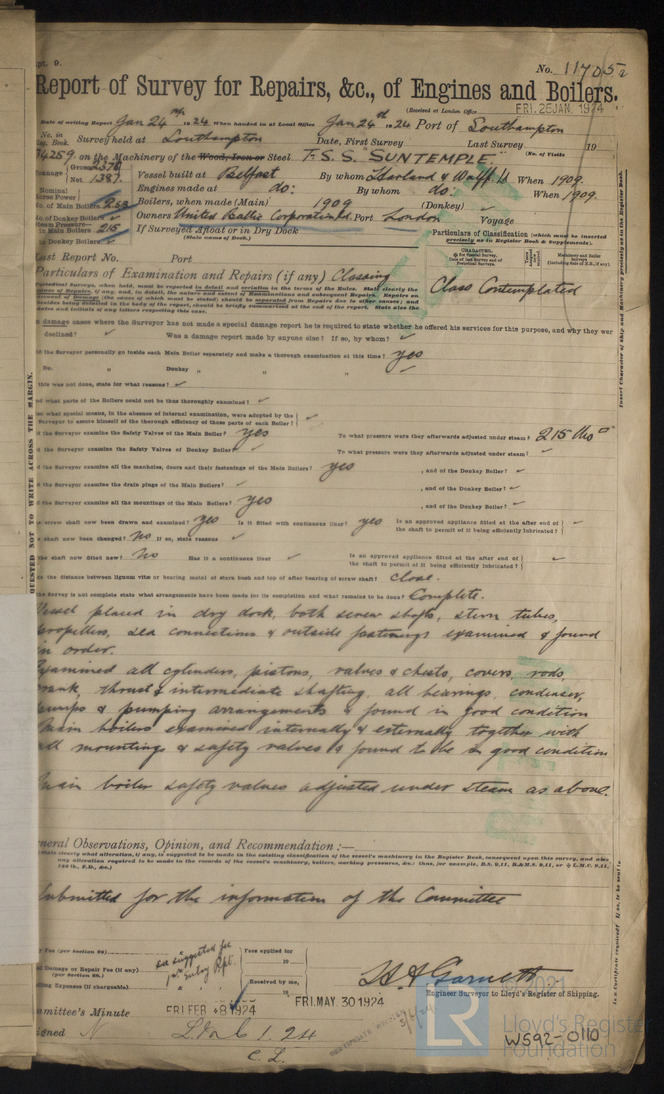 pt. 9.
No. 11705
Report of Survey for Repairs, &c., of Engines and Boilers.
(Received at London Office FRI. 25 JAN. 1924
Date of writing Report Jan 24th 1924 When handed in at Local Office Jan 24th 1924 Port of Southampton
No. in Reg. Book. Survey held at Southampton Date, First Survey Last Survey 19
on the Machinery of the Wood, Iron or Steel T.S.S. "SUNTEMPLE" (No. of Visits
Tonnage Gross 2370 Net 1387 Vessel built at Belfast By whom Harland & Wolff Ld When 1909.
Engines made at do: By whom do. When 1909.
Nominal Horse Power
No. of Main Boilers Boilers, when made (Main) 1909 (Donkey) ✓
No. of Donkey Boilers ✓ Owners United Baltic Corporation Ld. Port London Voyage
Steam Pressure in Main Boilers 215 If Surveyed Afloat or in Dry Dock
(State name of Dock.)
in Donkey Boilers ✓
Particulars of Classification (which must be inserted precisely as in Register Book & Supplements).
Last Report No. Port
Particulars of Examination and Repairs (if any) Classing
Class Contemplated
In damage cases where the Surveyor has not made a special damage report he is required to state whether he offered his services for this purpose, and why they were
declined? ✓ Was a damage report made by anyone else? If so, by whom? ✓
the Surveyor personally go inside each Main Boiler separately and make a thorough examination at this time? yes
Do. " Donkey " " " ✓
this was not done, state for what reasons? ✓
what parts of the Boilers could not be thus thoroughly examined? ✓
what special means, in the absence of internal examination, were adopted by the
Surveyor to assure himself of the thorough efficiency of those parts of each Boiler? ✓
the Surveyor examine the Safety Valves of the Main Boiler? yes To what pressure were they afterwards adjusted under steam? 215 lbs □"
the Surveyor examine the Safety Valves of Donkey Boiler? ✓ To what pressure were they afterwards adjusted under steam? ✓
the Surveyor examine all the manholes, doors and their fastenings of the Main Boilers? yes , and of the Donkey Boiler? ✓
the Surveyor examine the drain plugs of the Main Boilers? ✓ , and of the Donkey Boiler? ✓
the Surveyor examine all the mountings of the Main Boilers? yes , and of the Donkey Boiler? ✓
screw shaft now been drawn and examined? yes Is it fitted with continuous liner? yes Is an approved appliance fitted at the after end of the shaft to permit of it being efficiently lubricated? ✓
shaft now been changed? no If so, state reasons ✓
the shaft now fitted new? No Has it a continuous liner ✓ Is an approved appliance fitted at the after end of the shaft to permit of it being efficiently lubricated? ✓
the distance between lignum vitæ or bearing metal of stern bush and top of after bearing of screw shaft? close.
the Survey is not complete state what arrangements have been made for its completion and what remains to be done? Complete.
Vessel placed in dry dock, both screw shafts, stern tubes,
propellers, sea connections & outside fastenings examined & found
in order.
Examined all cylinders, pistons, valves & chests, covers, rods,
crank, thrust & intermediate shafting, all bearings, condenser,
pumps & pumping arrangements & found in good condition
Main boilers examined internally & externally together with
all mountings & safety valves & found to be in good condition
Main boiler safety valves adjusted under steam as above.
General Observations, Opinion, and Recommendation :—
Submitted for the information of the Committee
Fee (per Section 28)
see suggested fee
Fees applied for
19
Damage or Repair Fee (if any)
(per Section 28.)
Travelling Expenses (if chargeable)
Received by me,
19
Engineer Surveyor to Lloyd's Register of Shipping.
Committee's Minute FRI. FEB -8 1924 FRI. MAY. 30 1924
Assigned
QUESTED NOT TO WRITE ACROSS THE MARGIN.
© 2021
LR
Lloyd's Register
Foundation
WS92-0110